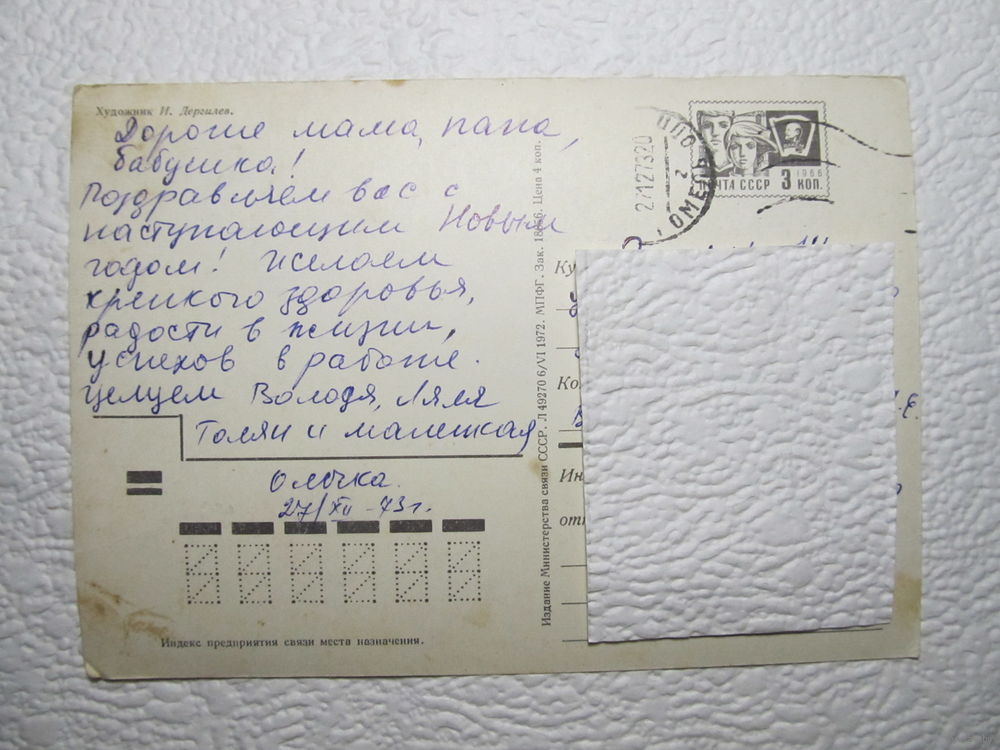 Художник И. Дергилев.
Дорогие мама, папа,
бабушка!
Поздравляем вас с
наступающим Новым
годом! Желаем
крепкого здоровья,
радости в жизни,
успехов в работе.
Целуем Володя, Ляля
Толян и маленькая
Олечка.
27/XII-73г.
Индекс предприятия связи места назначения.
Издание Министерства связи СССР. Л 49270 6/VI 1972. МПФГ. Зак. Цена 4 коп.
27127320
ПОЧТА СССР 3 КОП.
1966
Ку
Ко
Ин
отп